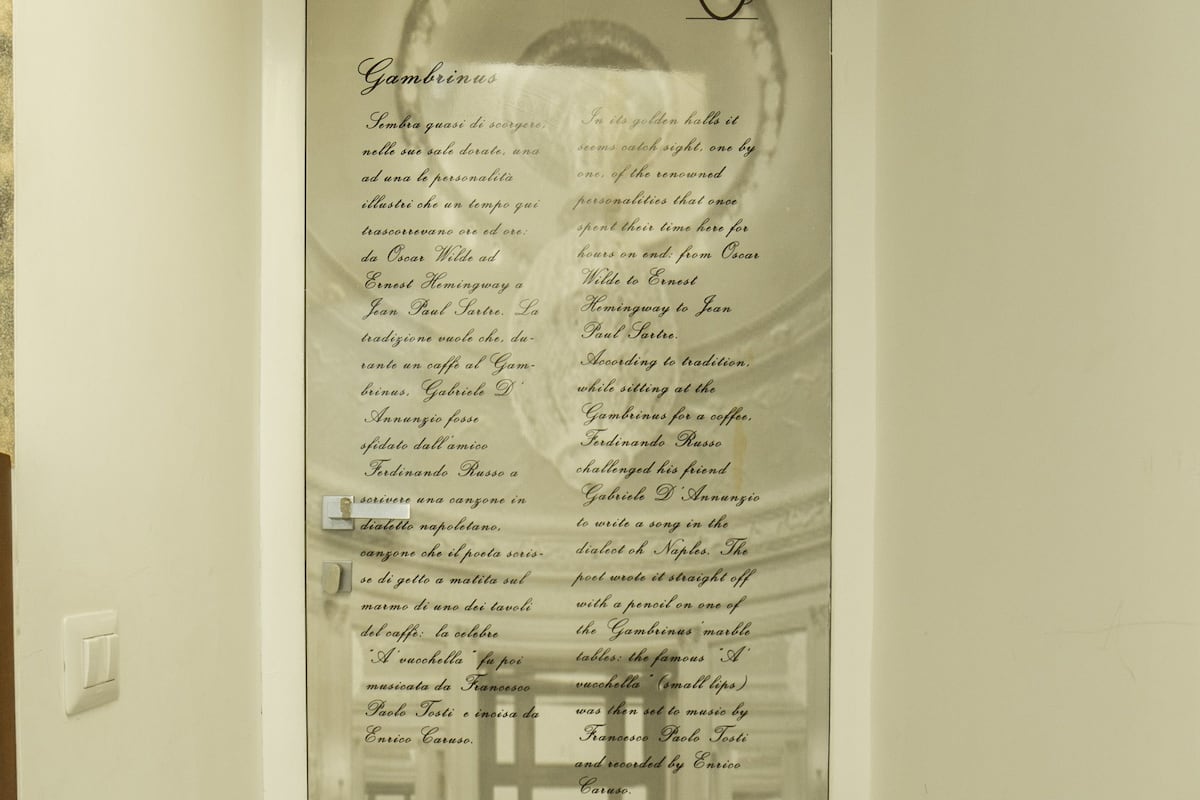 Gambrinus
Sembra quasi di scorgere,
nelle sue sale dorate, una
ad una le personalità
illustri che un tempo qui
trascorrevano ore ed ore:
da Oscar Wilde ad
Ernest Hemingway a
Jean Paul Sartre. La
tradizione vuole che, du-
rante un caffè al Gam-
brinus, Gabriele D'
Annunzio fosse
sfidato dall'amico
Ferdinando Russo a
scrivere una canzone in
dialetto napoletano,
canzone che il poeta scris-
se di getto a matita sul
marmo di uno dei tavoli
del caffè: la celebre
"A' vucchella" fu poi
musicata da Francesco
Paolo Tosti e incisa da
Enrico Caruso.
In its golden halls it
seems catch sight, one by
one, of the renowned
personalities that once
spent their time here for
hours on end: from Oscar
Wilde to Ernest
Hemingway to Jean
Paul Sartre.
According to tradition,
while sitting at the
Gambrinus for a coffee,
Ferdinando Russo
challenged his friend
Gabriele D'Annunzio
to write a song in the
dialect oh Naples. The
poet wrote it straight off
with a pencil on one of
the Gambrinus' marble
tables: the famous "A'
vucchella" (small lips)
was then set to music by
Francesco Paolo Tosti
and recorded by Enrico
Caruso.